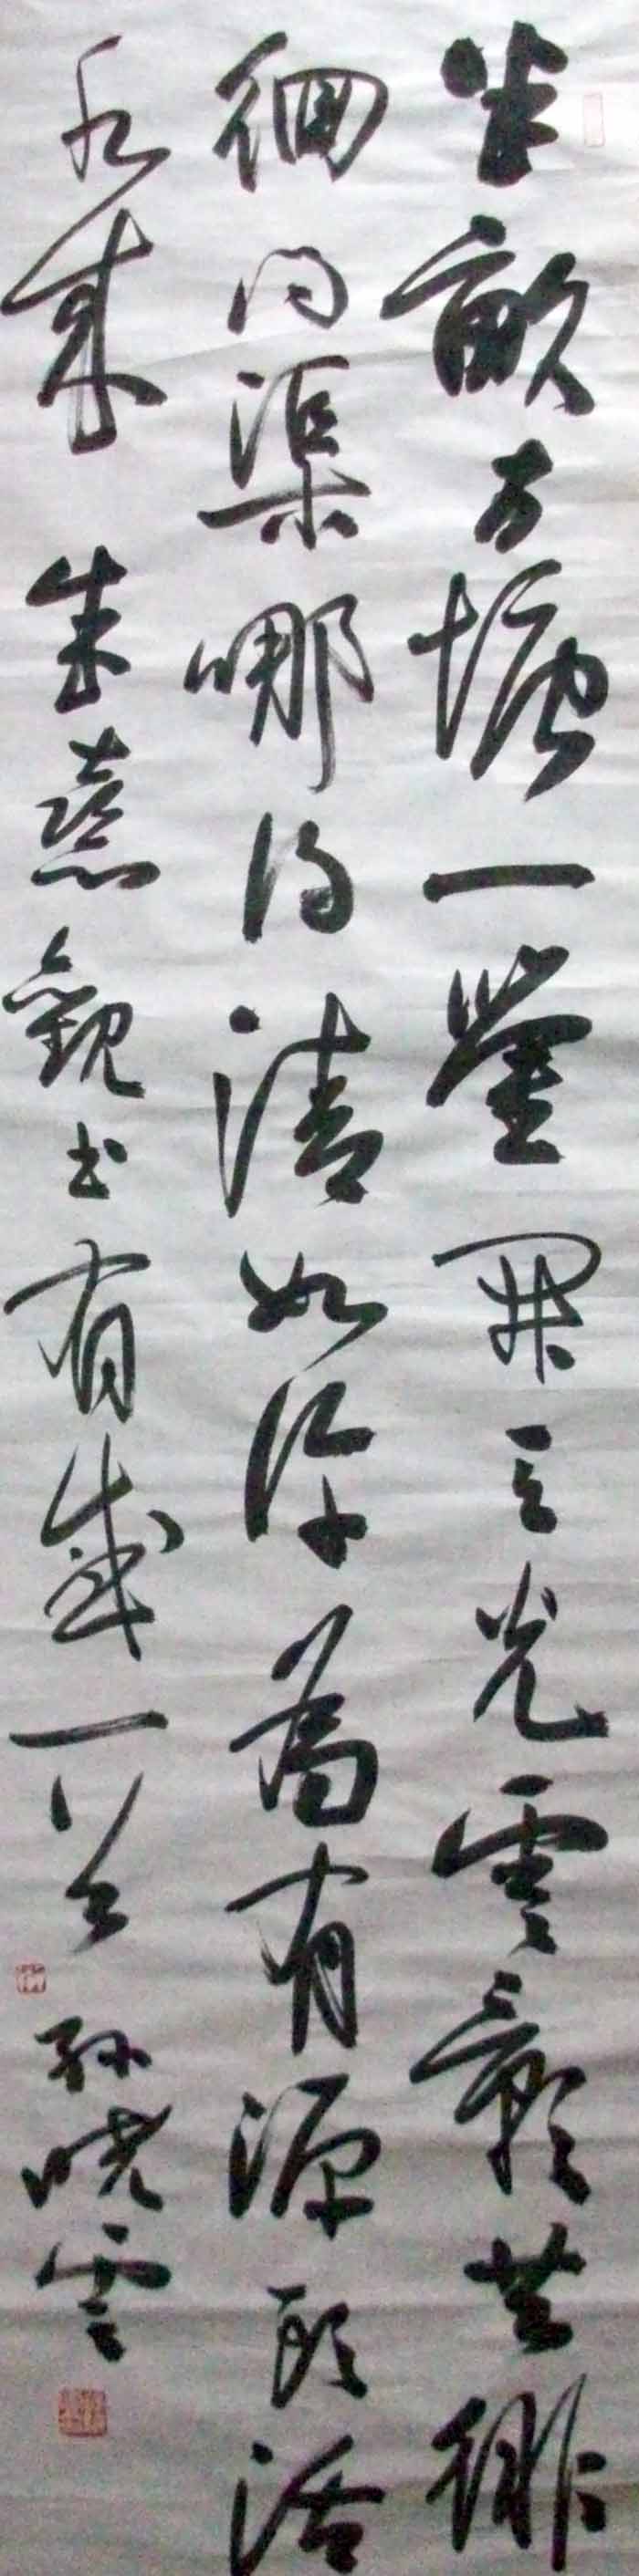 半畝方塘一鑒開天光雲影共徘
徊問渠哪得清如許為有源頭活
水來 朱熹觀書有感一首 孫曉雲